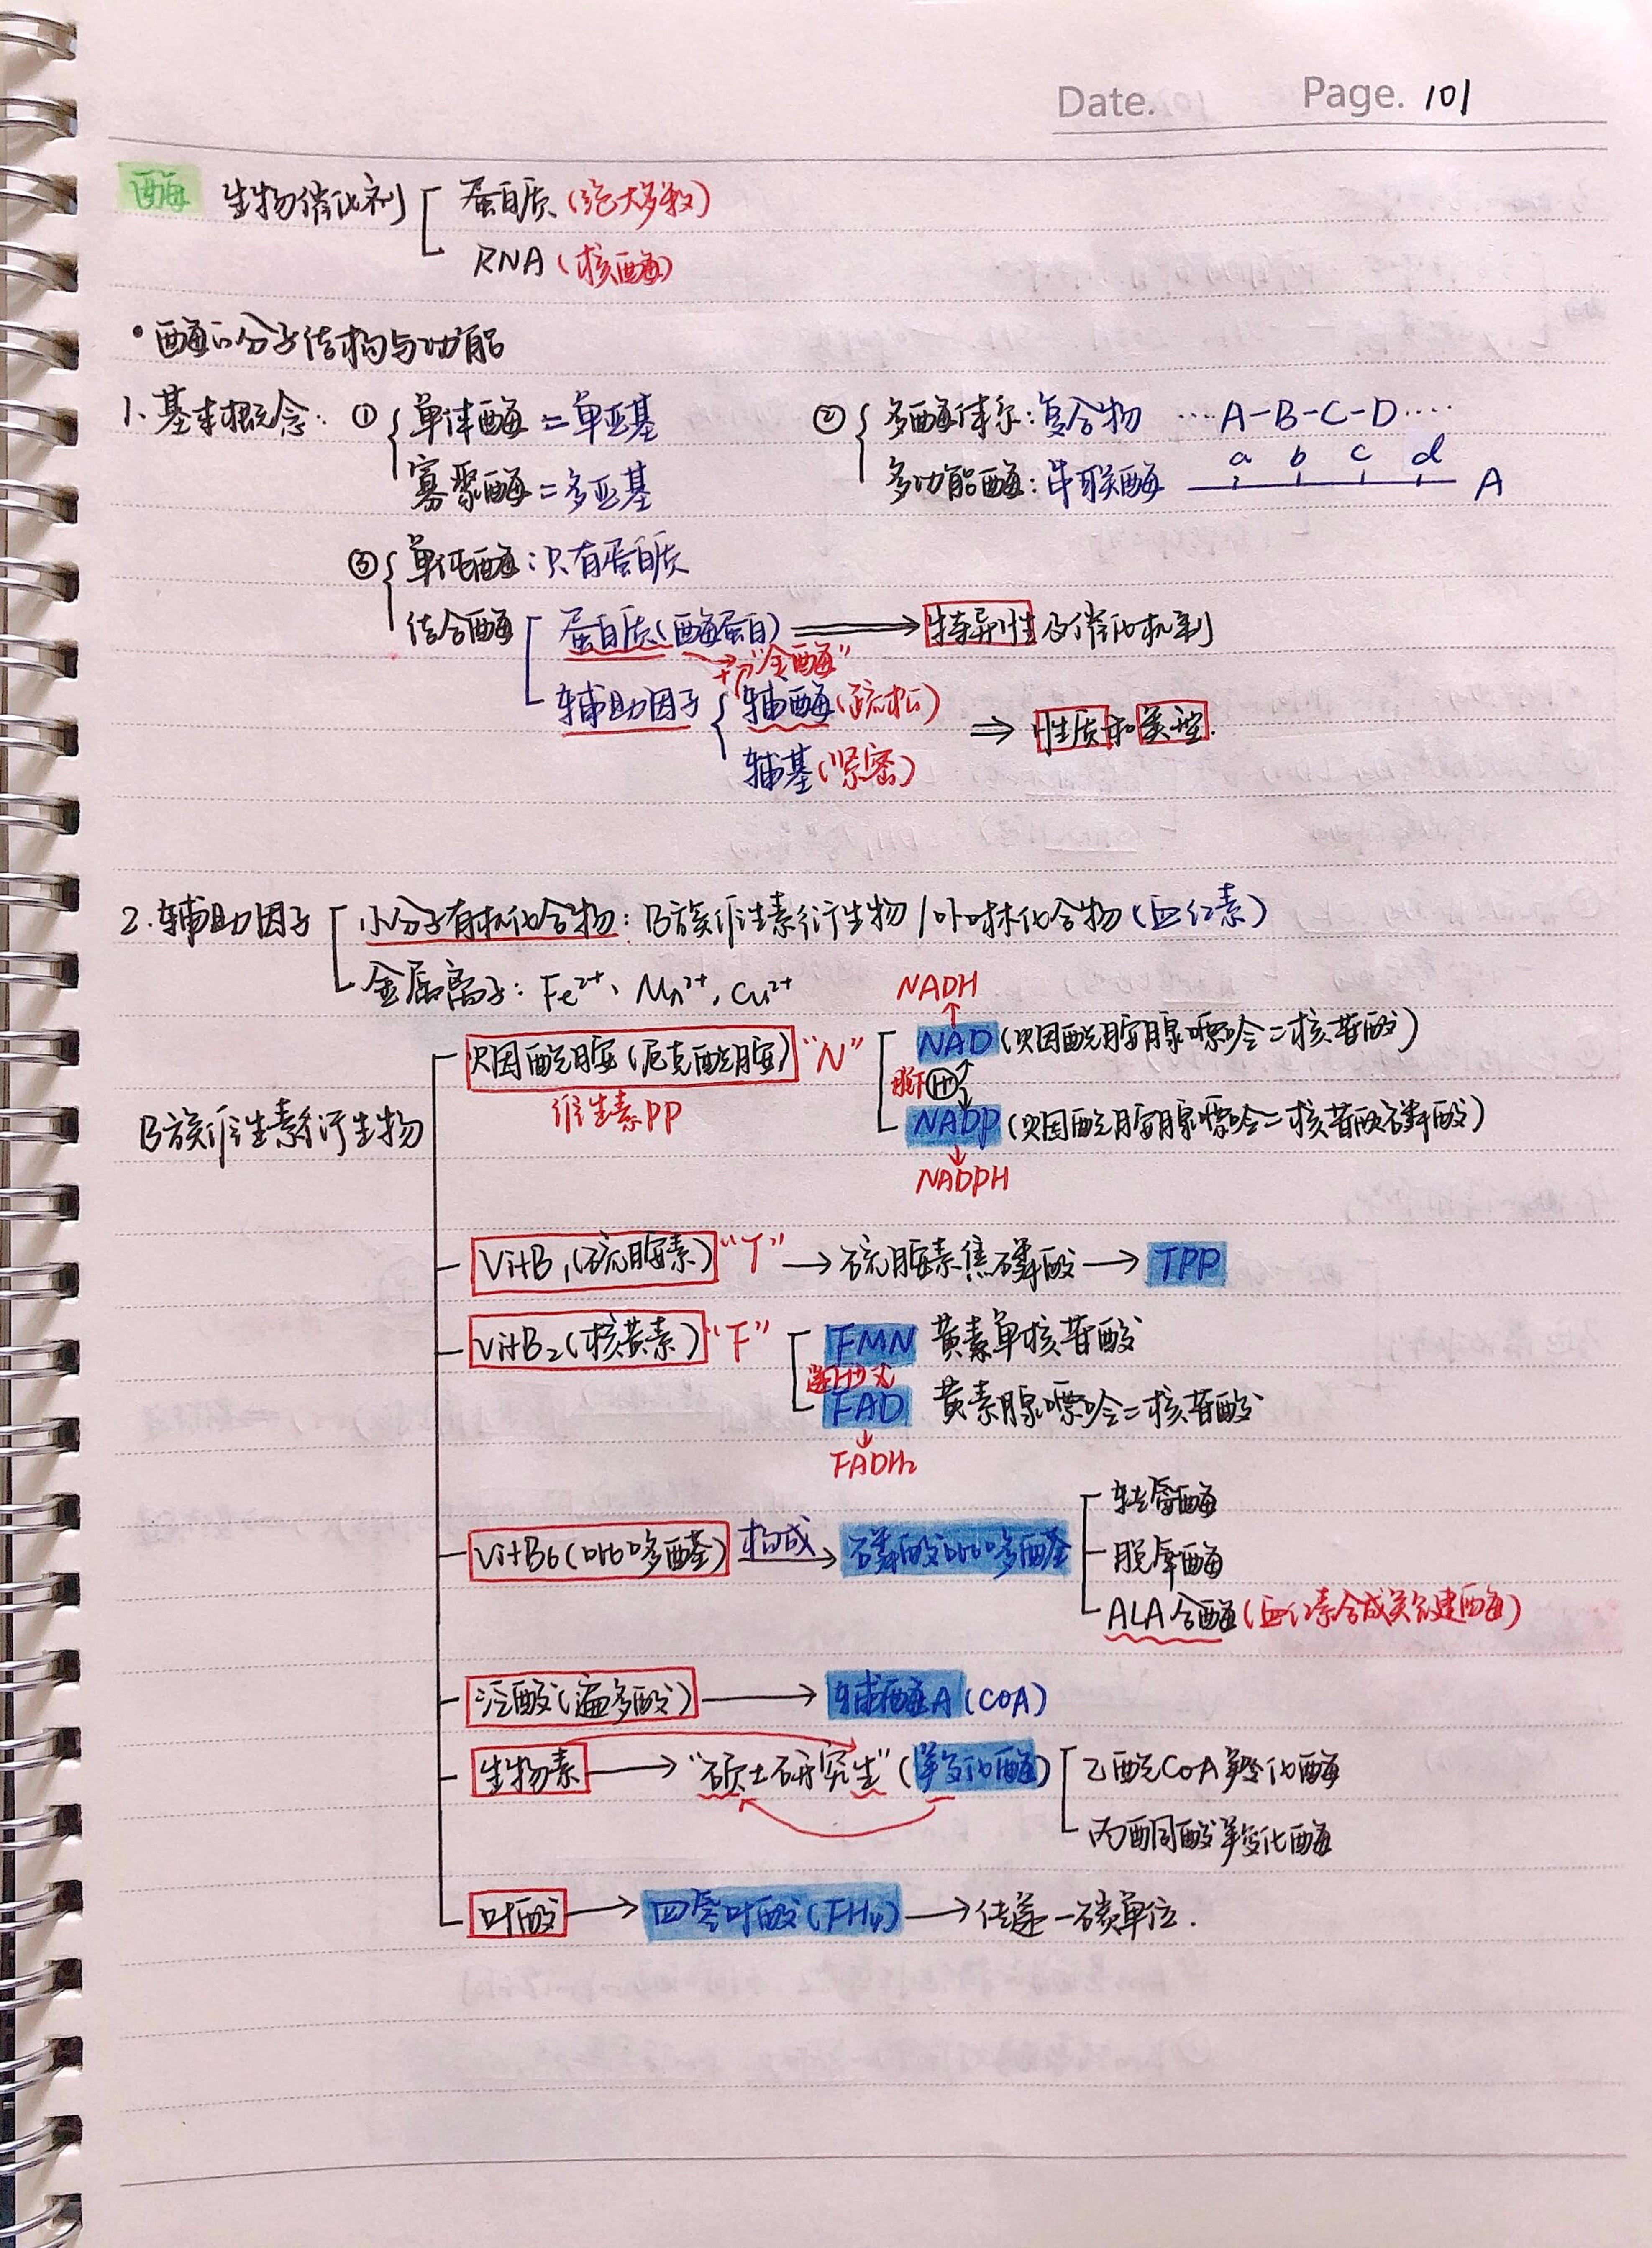 Date. Page. 101
酶 生物催化剂 蛋白质(绝大多数)
RNA(核酶)
·酶的分子结构与功能
1. 基本概念: ① 单体酶=单亚基 ② 多酶体系:复合物 ····A-B-C-D····
寡聚酶=多亚基 多功能酶:串联酶 a b c d A
③ 单纯酶:只有蛋白质
结合酶 蛋白质(酶蛋白) ⟹ 特异性及催化机制
+ "全酶"
辅助因子 辅酶(疏松) ⟹ 性质和类型.
辅基(紧密)
2. 辅助因子 小分子有机化合物: B族维生素衍生物/卟啉化合物(血红素)
金属离子: Fe²⁺、Mn²⁺、Cu²⁺
NADH
↑
烟酰胺(尼克酰胺) "N" NAD(烟酰胺腺嘌呤二核苷酸)
维生素PP H⁺
B族维生素衍生物 NADP(烟酰胺腺嘌呤二核苷酸磷酸)
↓
NADPH
VitB₁(硫胺素) "T" → 硫胺素焦磷酸 → TPP
VitB₂(核黄素) "F" FMN 黄素单核苷酸
FAD 黄素腺嘌呤二核苷酸
↓
FADH₂
转氨酶
VitB6(吡哆醛) 构成→ 磷酸吡哆醛 脱羧酶
ALA合酶(血红素合成关键酶)
泛酸(遍多酸) → 辅酶A(CoA)
生物素 → "硕士研究生"(羧化酶) 乙酰CoA羧化酶
丙酮酸羧化酶
叶酸 → 四氢叶酸(FH₄) → 传递一碳单位.